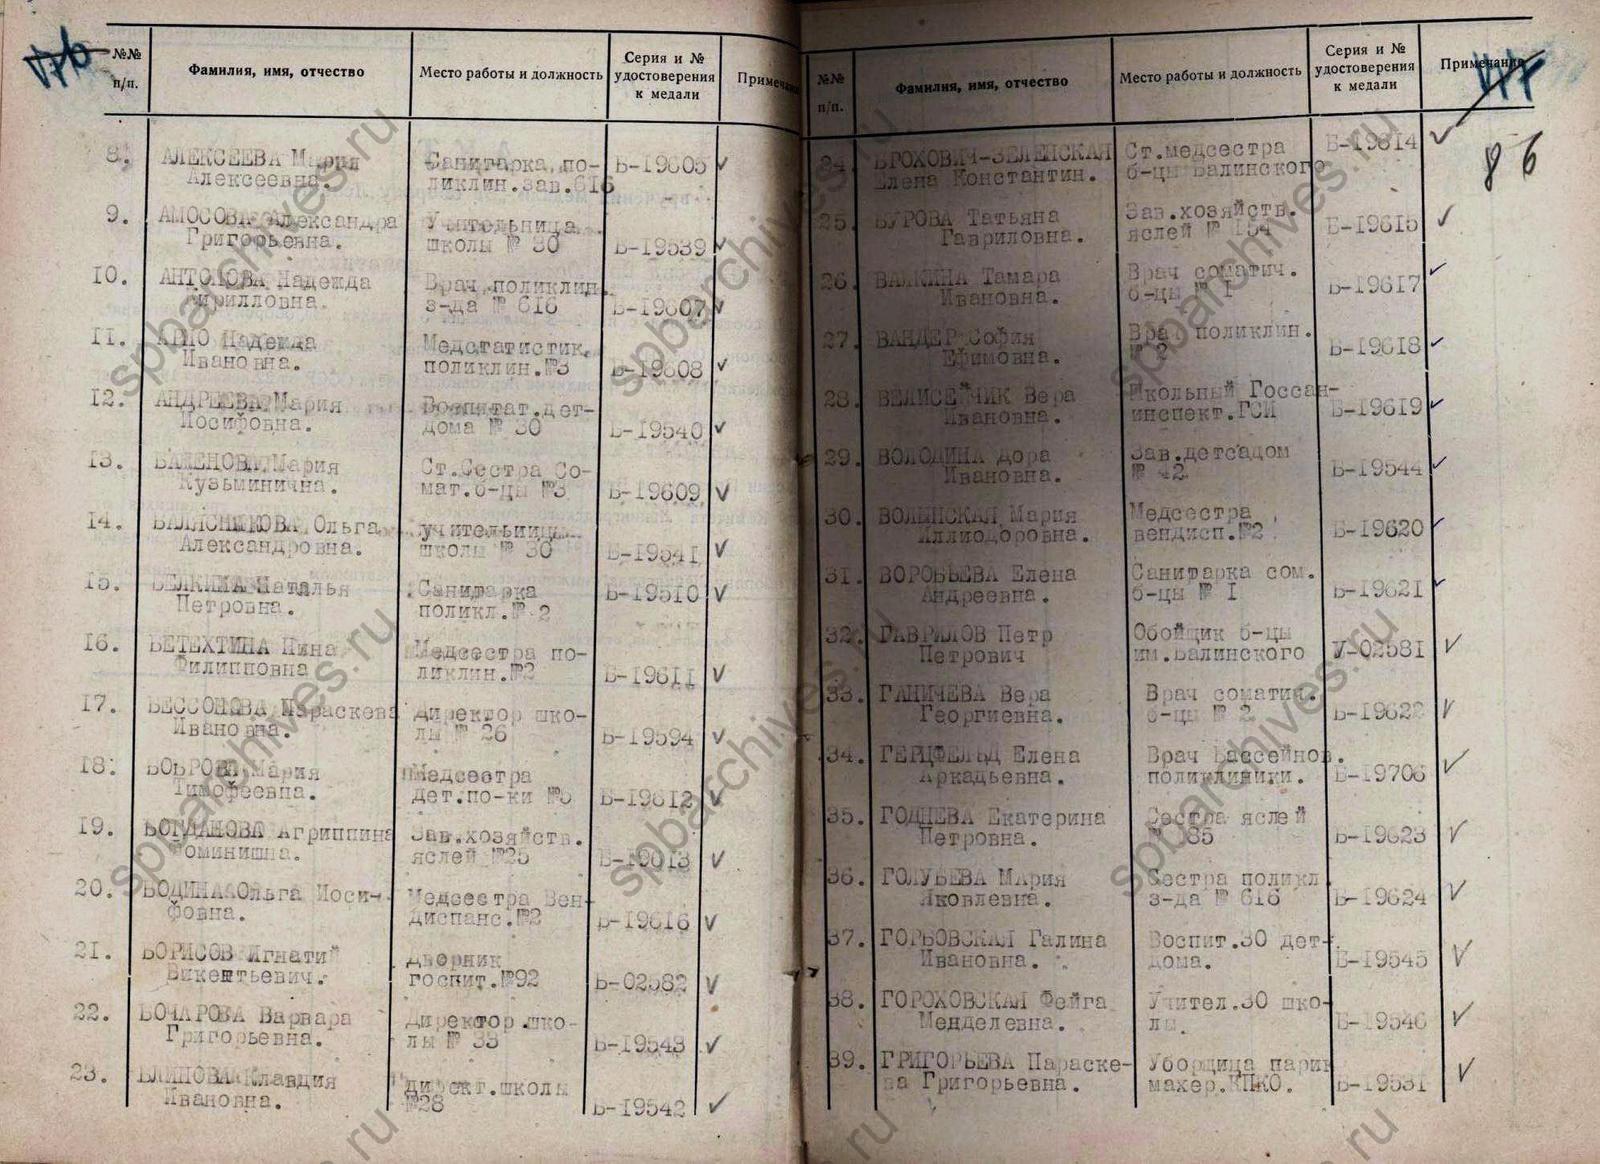 №№ п/п. Фамилия, имя, отчество Место работы и должность Серия и № удостоверения к медали Примечание
8. АЛЕКСЕЕВА Мария Санитарка по- Б-19605 ✓
Алексеевна. ликлин.зав.616
9. АМОСОВА Александра Учительница
Григорьевна. школы № 30 Б-19539 ✓
10. Надежда Врач поликлин.
Кирилловна. з-да № 616 Б-19607 ✓
11. Надежда Медстатистик
Ивановна. поликлин.№3 Б-19608 ✓
12. АНДРЕЕВА Мария Воспитат.дет-
Иосифовна. дома № 30 Б-19540 ✓
13. БАЖЕНОВА Мария Ст.Сестра Со-
Кузьминична. мат.б-цы №3 Б-19609 ✓
14. Ольга учительница
Александровна. школы № 30 Б-19541 ✓
15. БЕЛКИНА Наталья Санитарка Б-19510 ✓
Петровна. поликл.№ 2
16. БЕТЕХТИНА Нина Медсестра по-
Филипповна ликлин.№2 Б-19611 ✓
17. БЕССОНОВА Параскева Директор шко-
Ивановна. лы № 26 Б-19594 ✓
18. БОБРОВА Мария Медсестра
Тимофеевна. дет.по-ки Б-19612 ✓
19. БОГДАНОВА Агриппина Зав.хозяйств.
Фоминишна. яслей №25 Б-19613 ✓
20. БОДИНА Ольга Иоси- Медсестра Вен-
фовна. диспанс.№2 Б-19616 ✓
21. БОРИСОВ Игнатий Дворник
Викентьевич. госпит.№92 Б-02582 ✓
22. БОЧАРОВА Варвара Директор шко-
Григорьевна. лы № 33 Б-19543 ✓
23. БЛИНОВА Клавдия директ.школы
Ивановна. №28 Б-19542 ✓
№№ п/п. Фамилия, имя, отчество Место работы и должность Серия и № удостоверения к медали Примечание
86
24. БРОХОВИЧ-ЗЕЛЕНСКАЯ Ст.медсестра Б-19614 ✓
Елена Константин. б-цы Балинского
25. БУРОВА Татьяна Зав.хозяйств. Б-19615 ✓
Гавриловна. яслей № 154
26. ВАЛКИНА Тамара Врач соматич. Б-19617 ✓
Ивановна. б-цы № 1
27. ВАНДЕР София Врач поликлин. Б-19618 ✓
Ефимовна. № 2
28. ВЕЛИСЕЙЧИК Вера Школьный Госсан- Б-19619 ✓
Ивановна. инспект.ГСИ
29. ВОЛОДИНА Дора Зав.детсадом Б-19544 ✓
Ивановна. № 42
30. ВОЛЫНСКАЯ Мария Медсестра Б-19620 ✓
Иллиодоровна. вендисп.№2
31. ВОРОБЬЕВА Елена Санитарка сом. Б-19621 ✓
Андреевна. б-цы № 1
32. ГАВРИЛОВ Петр Обойщик б-цы
Петрович им.Балинского У-02581 ✓
33. ГАНИЧЕВА Вера Врач соматич. Б-19622 ✓
Георгиевна. б-цы № 2
34. ГЕРЦФЕЛЬД Елена Врач Бассейнов. Б-19706 ✓
Аркадьевна. поликлиники.
35. ГОДНЕВА Екатерина Сестра яслей Б-19623 ✓
Петровна. № 85
36. ГОЛУБЕВА Мария Сестра поликл.
Яковлевна. з-да № 616 Б-19624 ✓
37. ГОРБОВСКАЯ Галина Воспит.30 дет- Б-19545 ✓
Ивановна. дома.
38. ГОРОХОВСКАЯ Фейга Учител.30 шко- Б-19546 ✓
Менделевна. лы.
39. ГРИГОРЬЕВА Параске- Уборщица парик Б-19531 ✓
ва Григорьевна. махер.КПКО.
spbarchives.ru